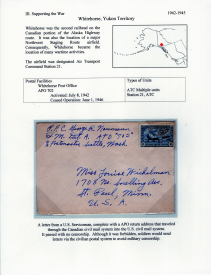 III. Supporting the War
1942-1945
Whitehorse, Yukon Territory
Whitehorse was the second railhead on the
Canadian portion of the Alaska Highway
route. It was also the location of a major
Northwest Staging Route airfield.
Consequently, Whitehorse became the
location of many wartime activities.
The airfield was designated Air Transport
Command Station 21.
Postal Facilities
Whitehorse Post Office
APO 702
Activated: July 8, 1942
Ceased Operation: June 1, 1946
Types of Units
ATC Multiple units
Station 21, ATC
P.F.C. George R. Neumann
A.P.O. "702"
% Postmaster Seattle, Wash.
Miss Louise Winkelman
1708 No. Snelling Ave.
St. Paul, Minn.
U.S.A.
A letter from a U.S. Serviceman, complete with a APO return address that traveled
through the Canadian civil mail system into the U.S. civil mail system.
It passed with no censorship. Although it was forbidden, soldiers would send
letters via the civilian postal system to avoid military censorship.